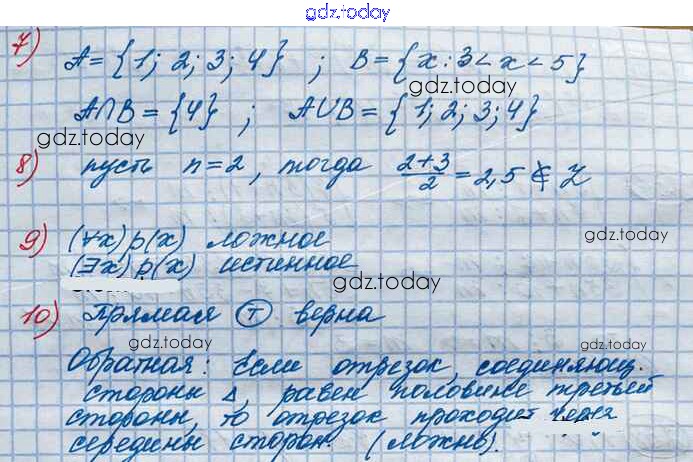 gdz.today
7) A = {1; 2; 3; 4} ; B = {x : 3 < x < 5}
gdz.today
A∩B = {4} ; A∪B = {1; 2; 3; 4}
gdz.today
8) пусть n = 2, тогда (2+3)/2 = 2,5 ∉ Z
9) (∀x) p(x) ложное
gdz.today
(∃x) p(x) истинное
gdz.today
10) Прямая Ⓣ верна
gdz.today
Обратная: Если отрезок, соединяющ.
стороны Δ, равен половине третьей
gdz.today
стороны, то отрезок проходит через
середины сторон. (ложно).
gdz.today